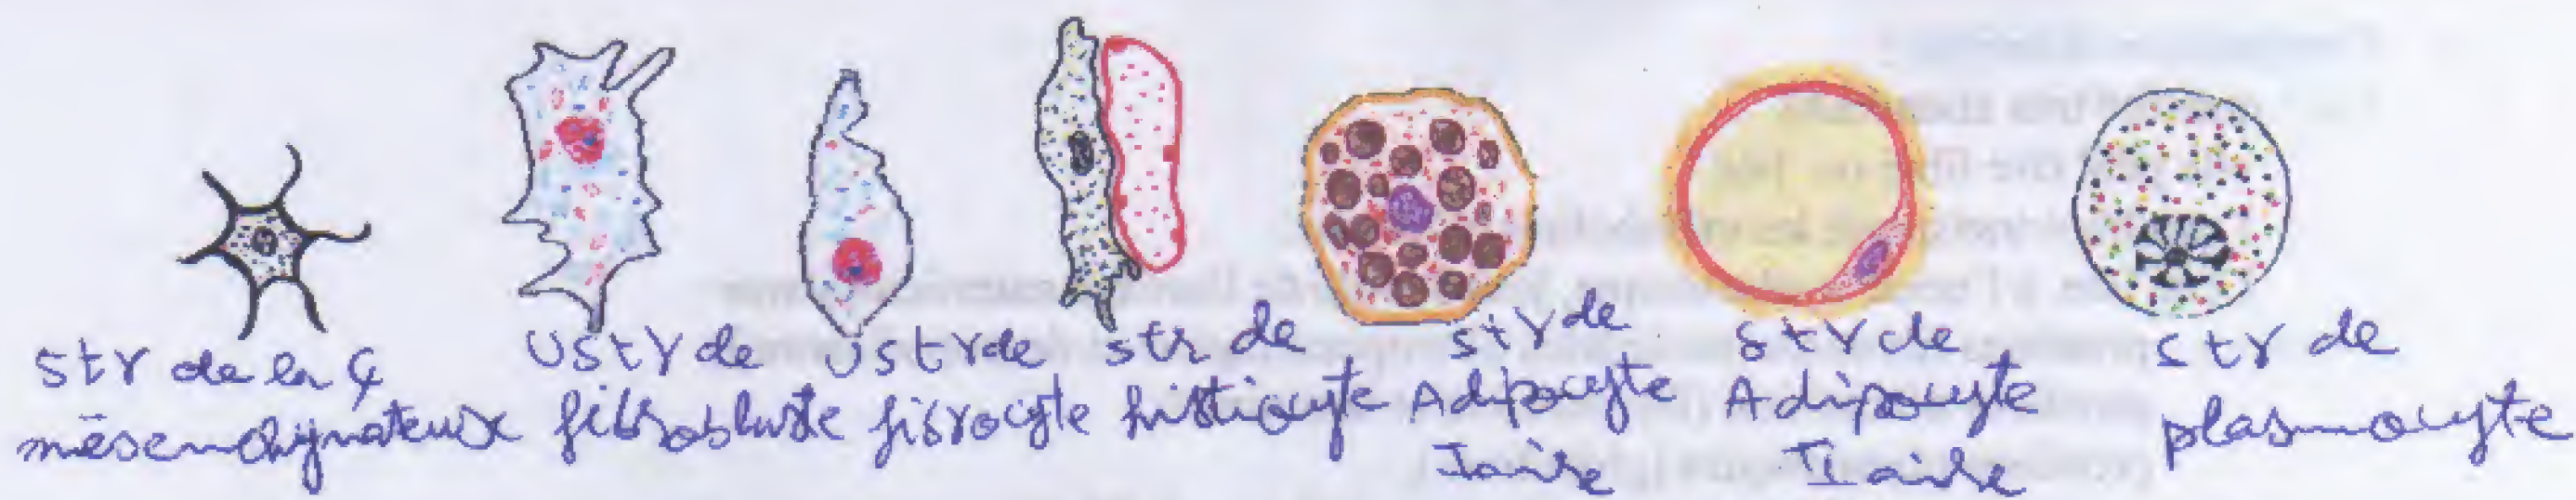 Str de la ç
mésenchymateuse
Ustr de
fibroblaste
Ustr de
fibrocyte
str de
histiocyte
str de
Adipocyte
Iaire
Str de
Adipocyte
IIaire
str de
plasmocyte